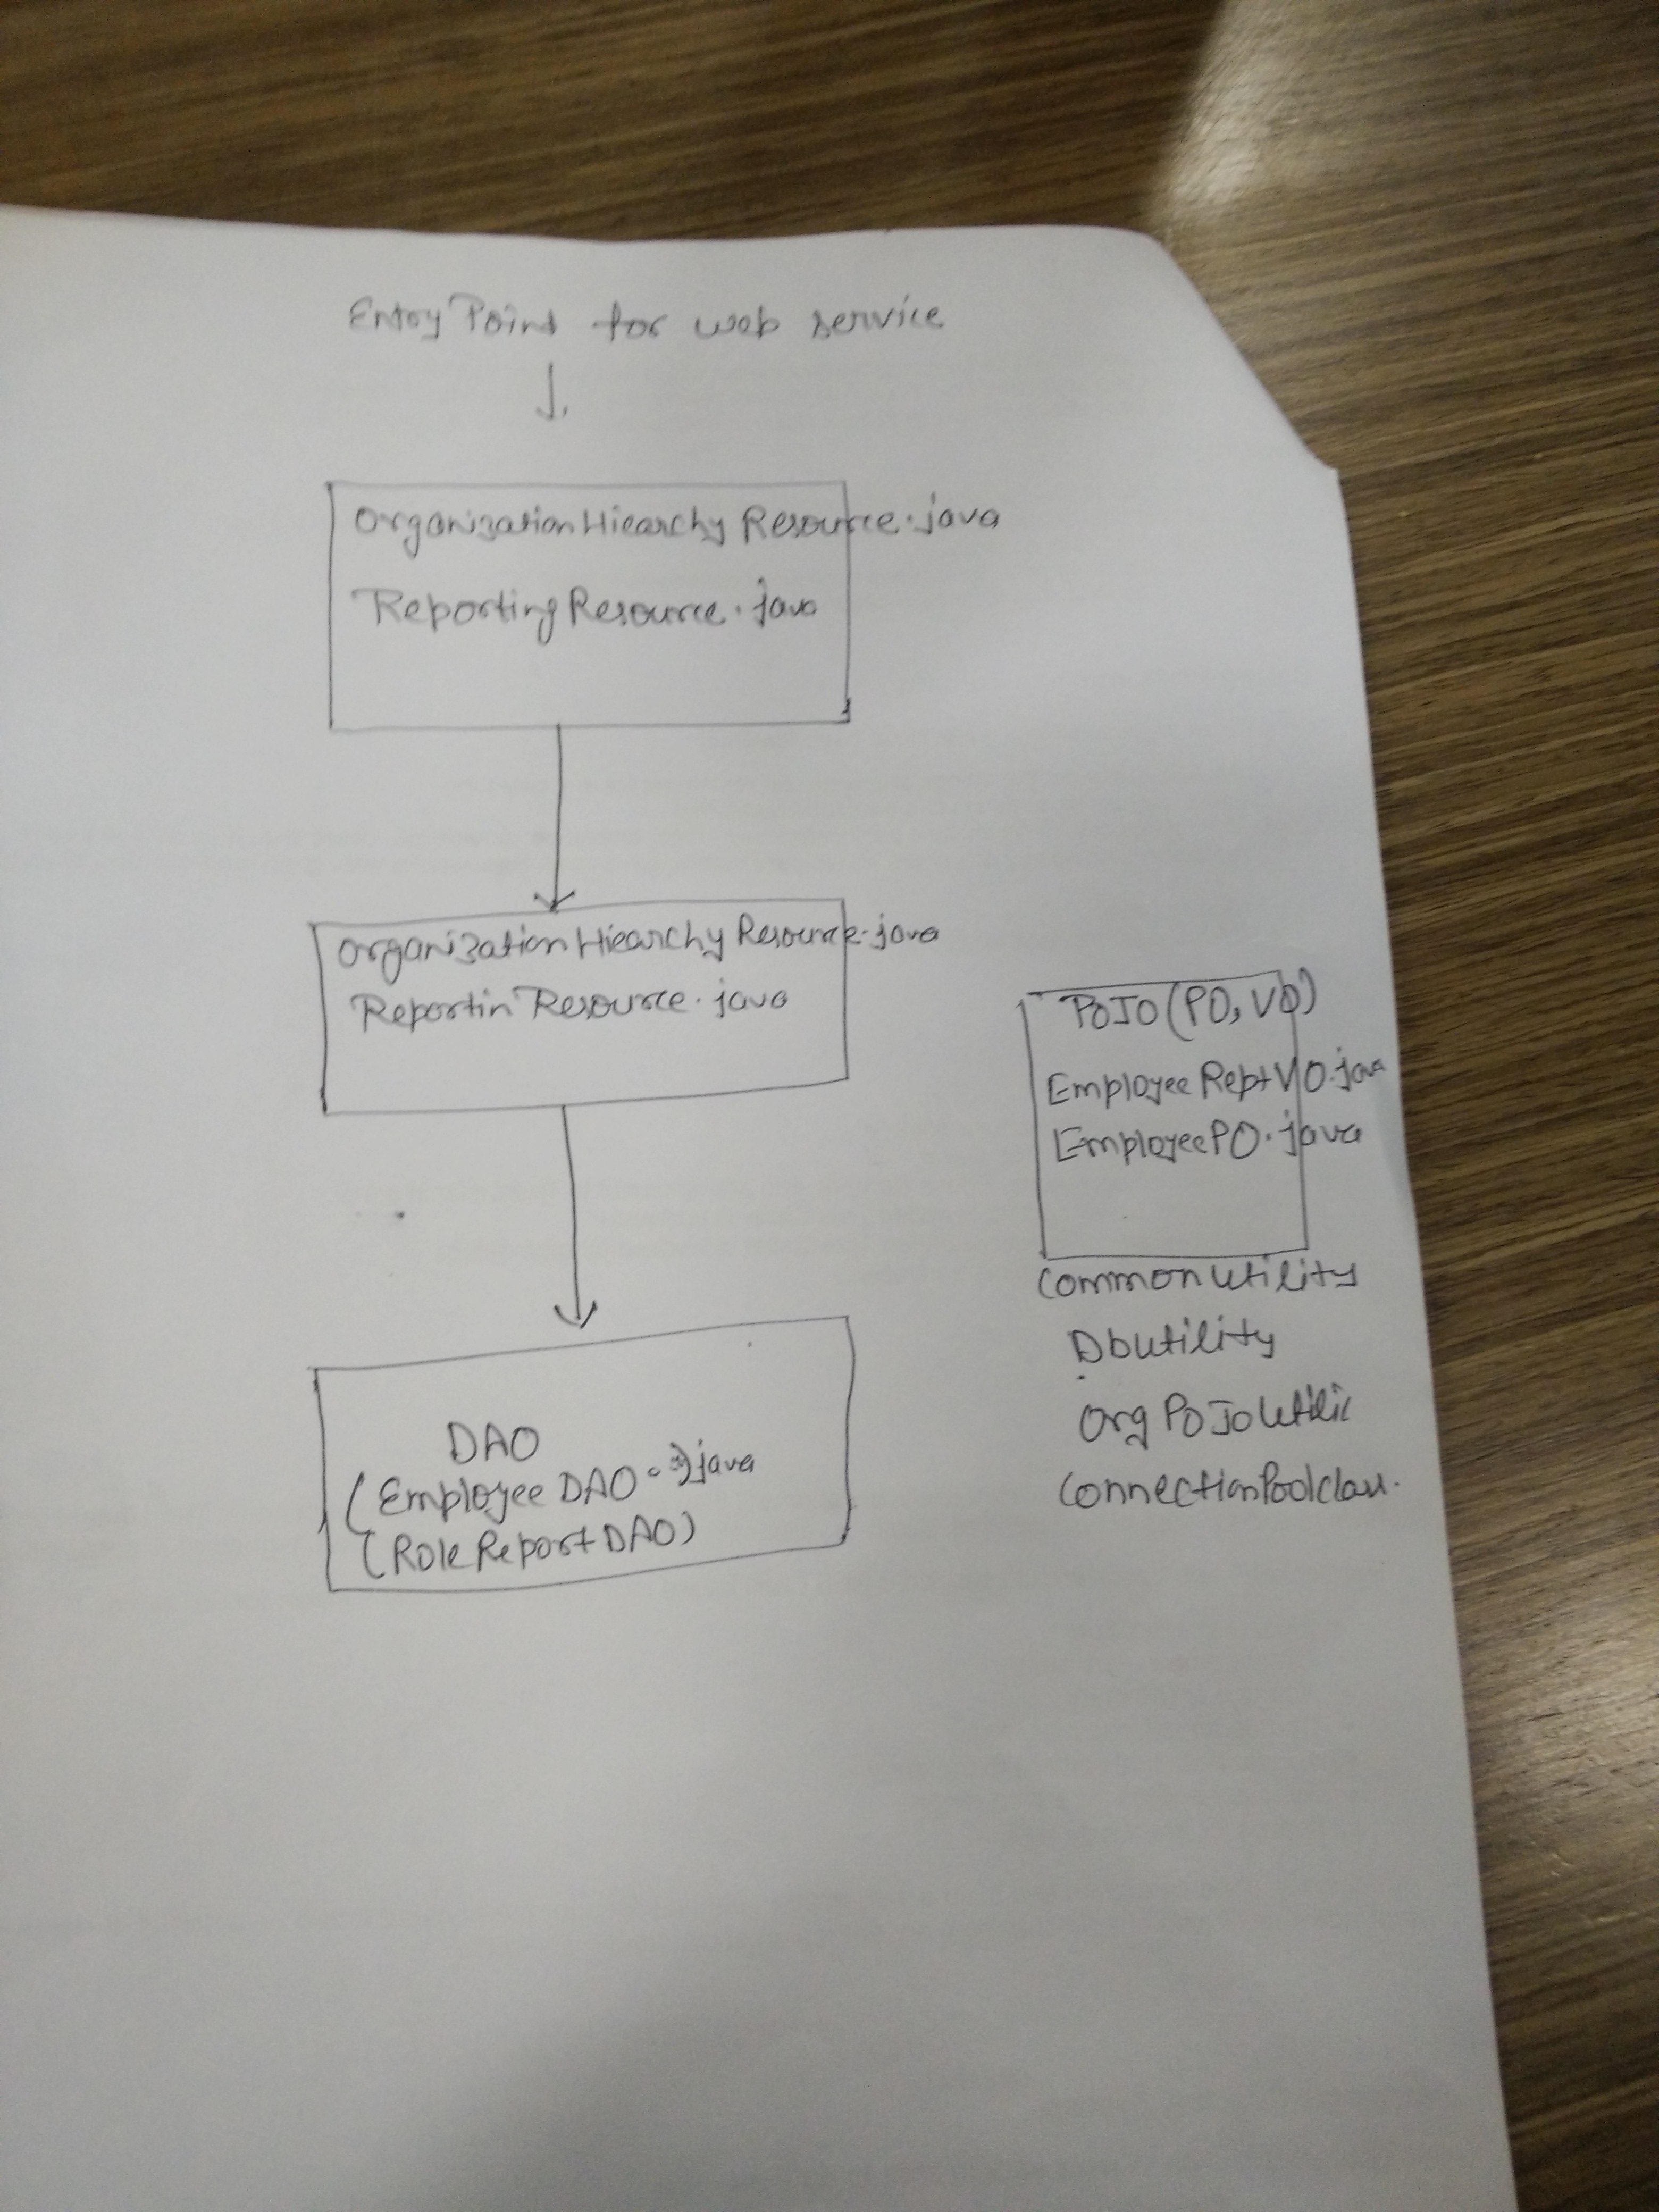 Entry Point for web service
OrganizationHiearchy Resource.java
Reporting Resource.java
OrganizationHiearchy Resource.java
Reportin Resource.java
DAO
(Employee DAO.java
(Role Report DAO)
POJO (PO, VO)
Employee Rept VO.java
EmployeePO.java
Common Utility
DbUtility
Org POJO Utilic
ConnectionPoolclass.